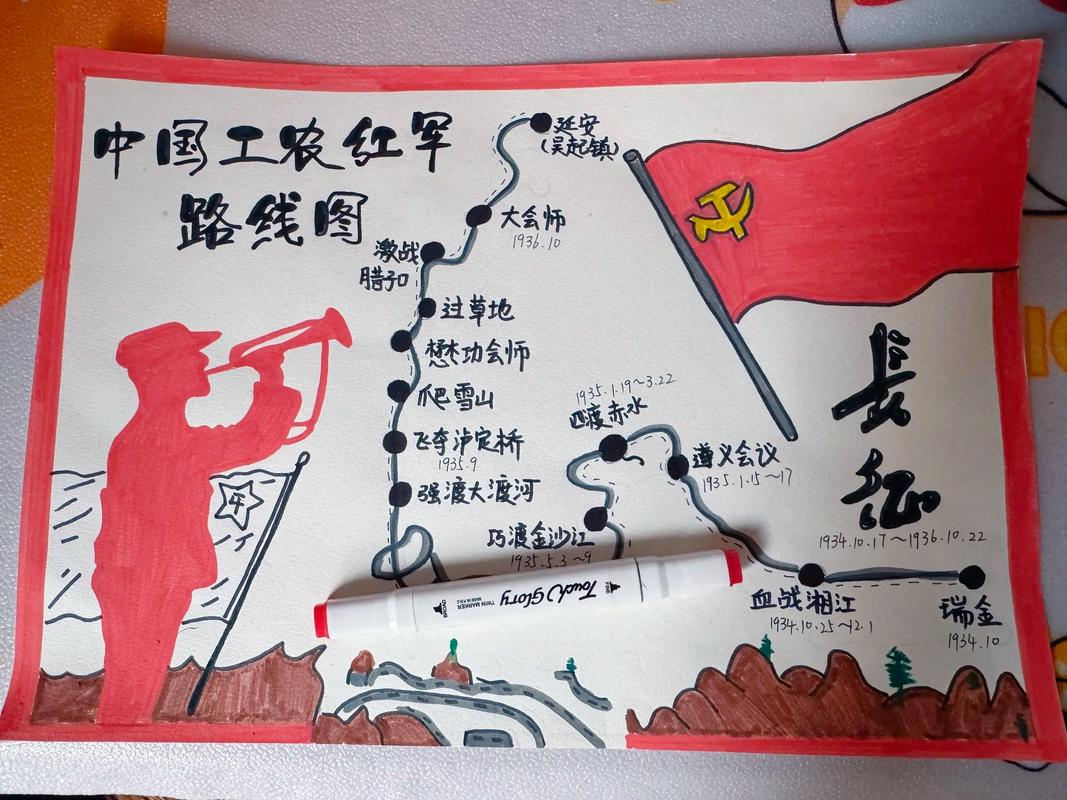 中国工农红军
路线图
延安
(吴起镇)
大会师
1936.10
激战
腊子口
过草地
懋功会师
爬雪山
飞夺泸定桥
1935.9
强渡大渡河
1935.1.19~3.22
四渡赤水
遵义会议
1935.1.15~17
巧渡金沙江
1935.5.3~9
长征
1934.10.17~1936.10.22
血战湘江
1934.10.25~12.1
瑞金
1934.10
Touch Glory
TWIN MARKER
MADE IN P.R.C
FINE